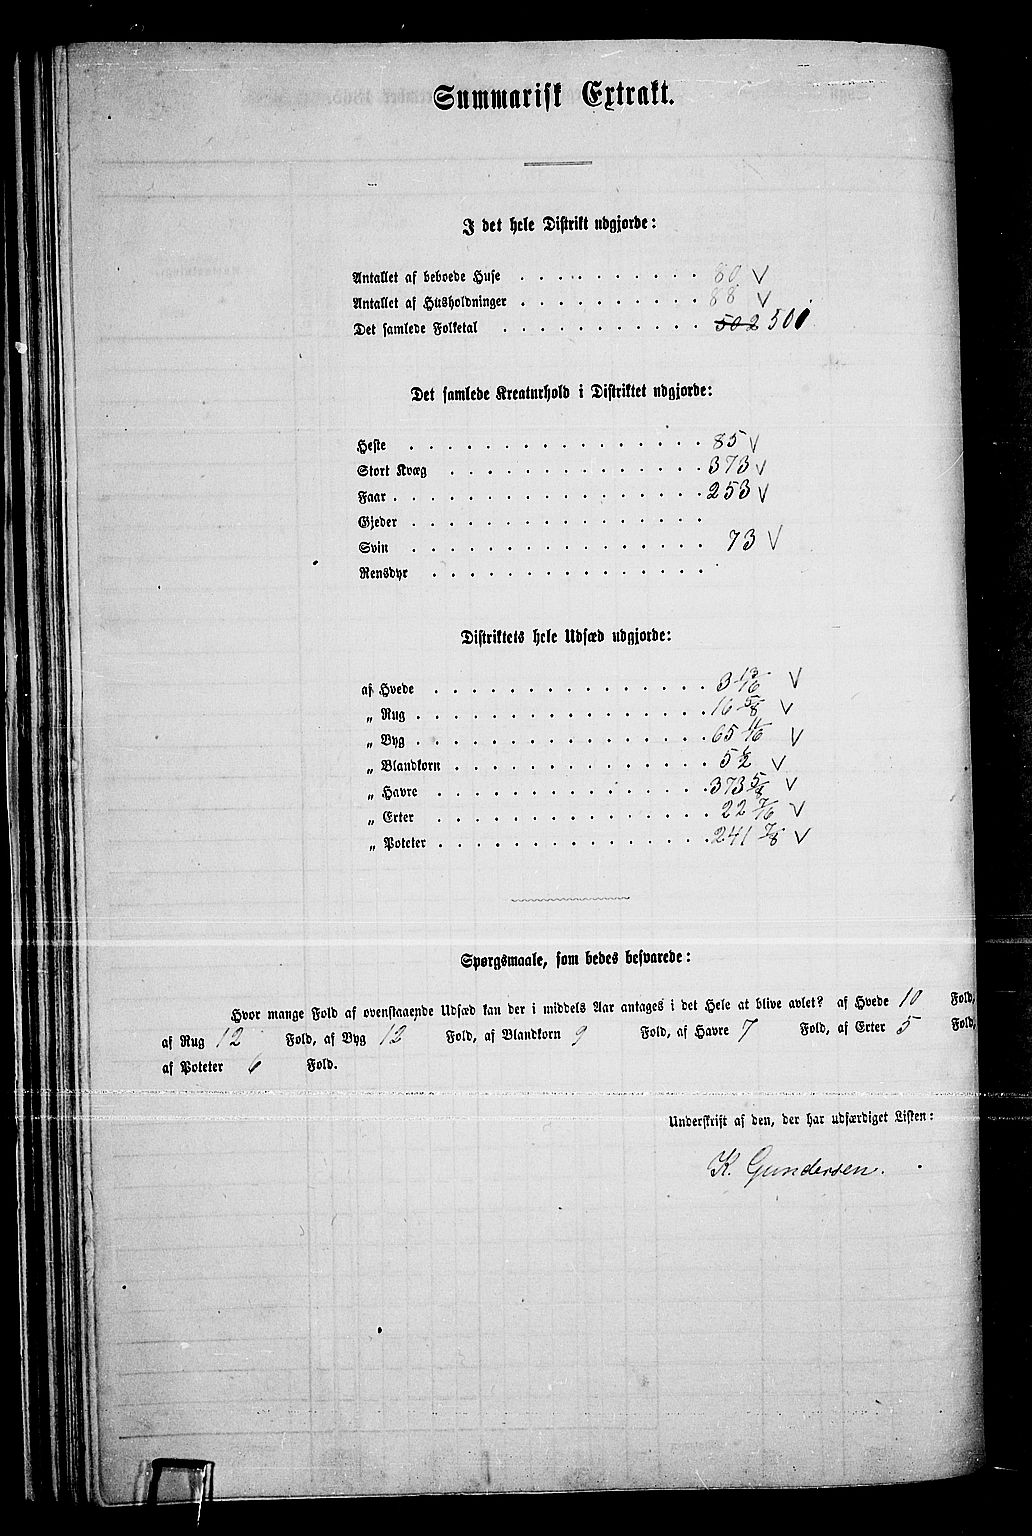 Summarisk Extrakt.
I det hele Distrikt udgjorde:
Antallet af beboede Huse . . . . . . . . . . 80 V
Antallet af Husholdninger . . . . . . . . . . 88 V
Det samlede Folketal . . . . . . . . . . . 502 501
Det samlede Kreaturhold i Distriktet udgjorde:
Heste . . . . . . . . . . . . . . . . 85 V
Stort Kvæg . . . . . . . . . . . . . . 373 V
Faar . . . . . . . . . . . . . . . . . 253 V
Gjeder . . . . . . . . . . . . . . . .
Svin . . . . . . . . . . . . . . . . 73 V
Rensdyr . . . . . . . . . . . . . . .
Distriktets hele Udsæd udgjorde:
af Hvede . . . . . . . . . . . . . . . 3 13/16 V
„ Rug . . . . . . . . . . . . . . . . 16 5/8 V
„ Byg . . . . . . . . . . . . . . . . 65 11/16 V
„ Blandkorn . . . . . . . . . . . . . . 5 1/2 V
„ Havre . . . . . . . . . . . . . . . 373 5/8 V
„ Erter . . . . . . . . . . . . . . . 22 7/16 V
„ Poteter . . . . . . . . . . . . . . . 241 7/8 V
Spørgsmaale, som bedes besvarede:
Hvor mange Fold af ovenstaaende Udsæd kan der i middels Aar antages i det Hele at blive avlet? af Hvede 10 Fold,
af Rug 12 Fold, af Byg 12 Fold, af Blandkorn 9 Fold, af Havre 7 Fold, af Erter 5 Fold,
af Poteter 6 Fold.
Underskrift af den, der har udfærdiget Listen:
K. Gundersen.